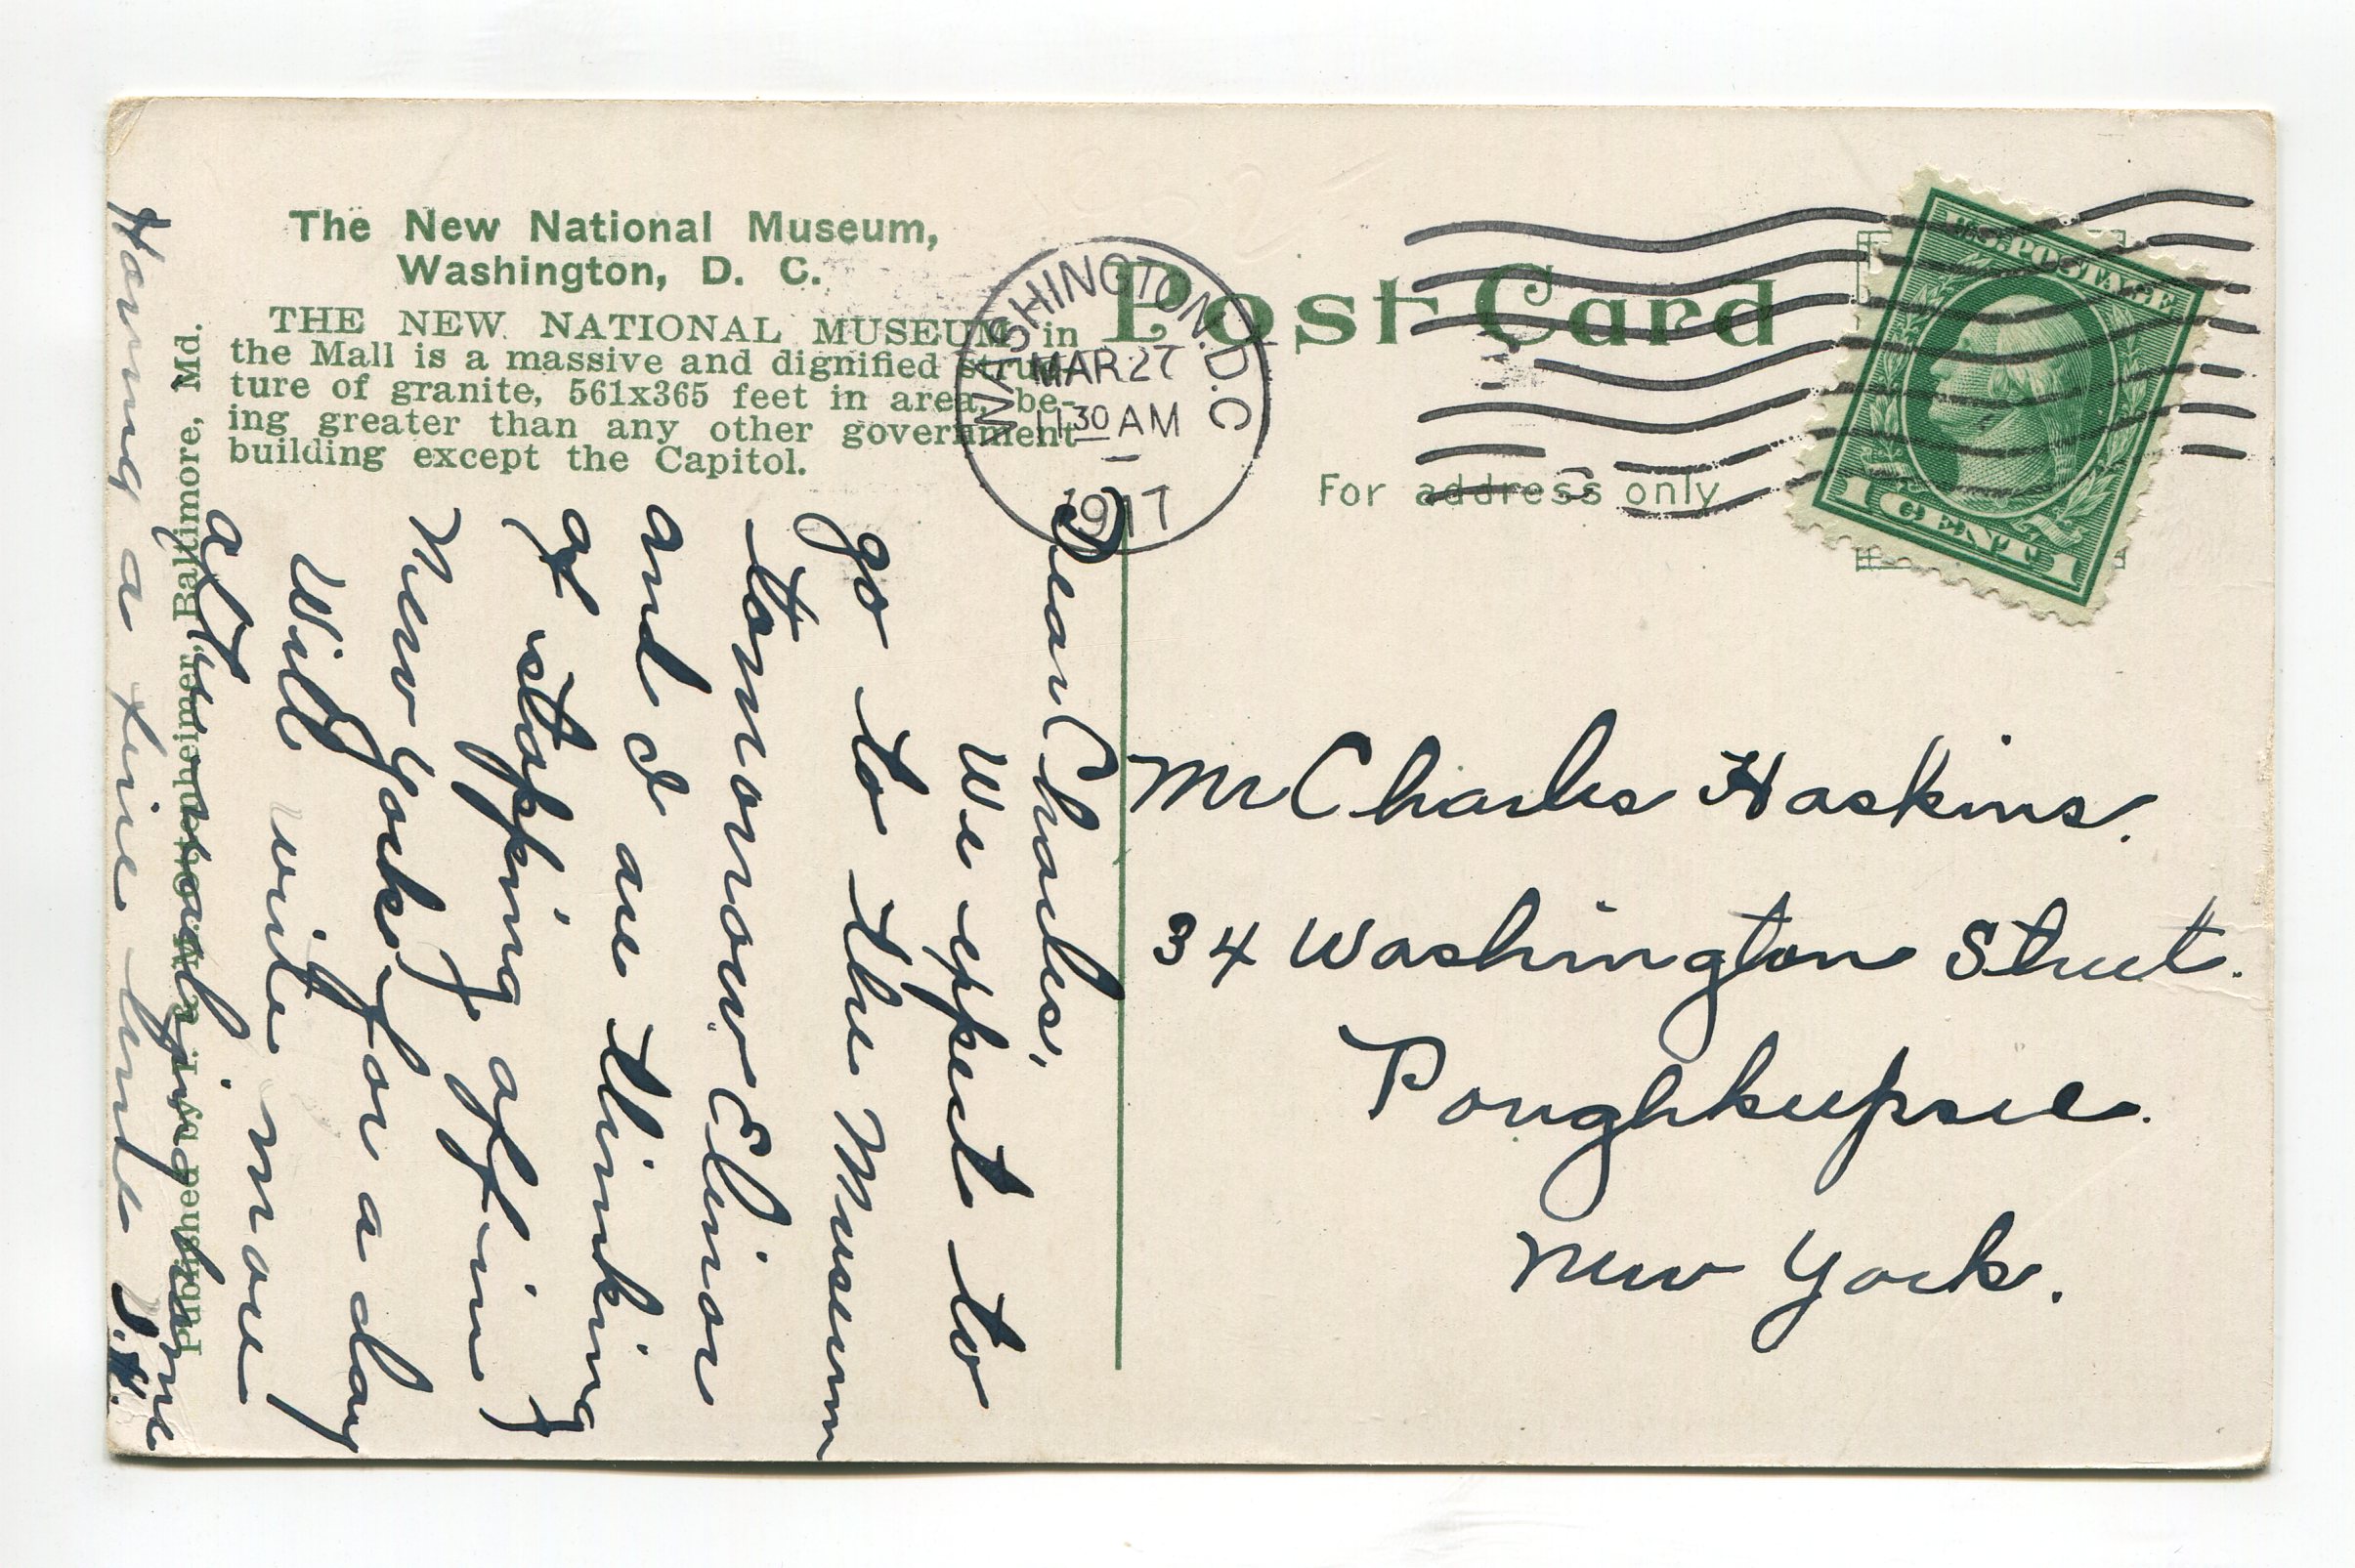 The New National Museum,
Washington, D. C.
THE NEW NATIONAL MUSEUM in
the Mall is a massive and dignified struc-
ture of granite, 561x365 feet in area, be-
ing greater than any other government
building except the Capitol.
Published by I. & M. Ottenheimer, Baltimore, Md.
Post Card
For address only
WASHINGTON, D.C.
MAR 27
11 30 AM
1917
U.S. POSTAGE
1 CENT 1
Dear Charles,
We expect to
go to the Museum
tomorrow Elinor
and I are thinking
of stopping off in
New York for a day
Will write more
after reaching home
Having a fine time J.H.
Mr Charles Haskins.
34 Washington Street.
Poughkeepsie.
New York.